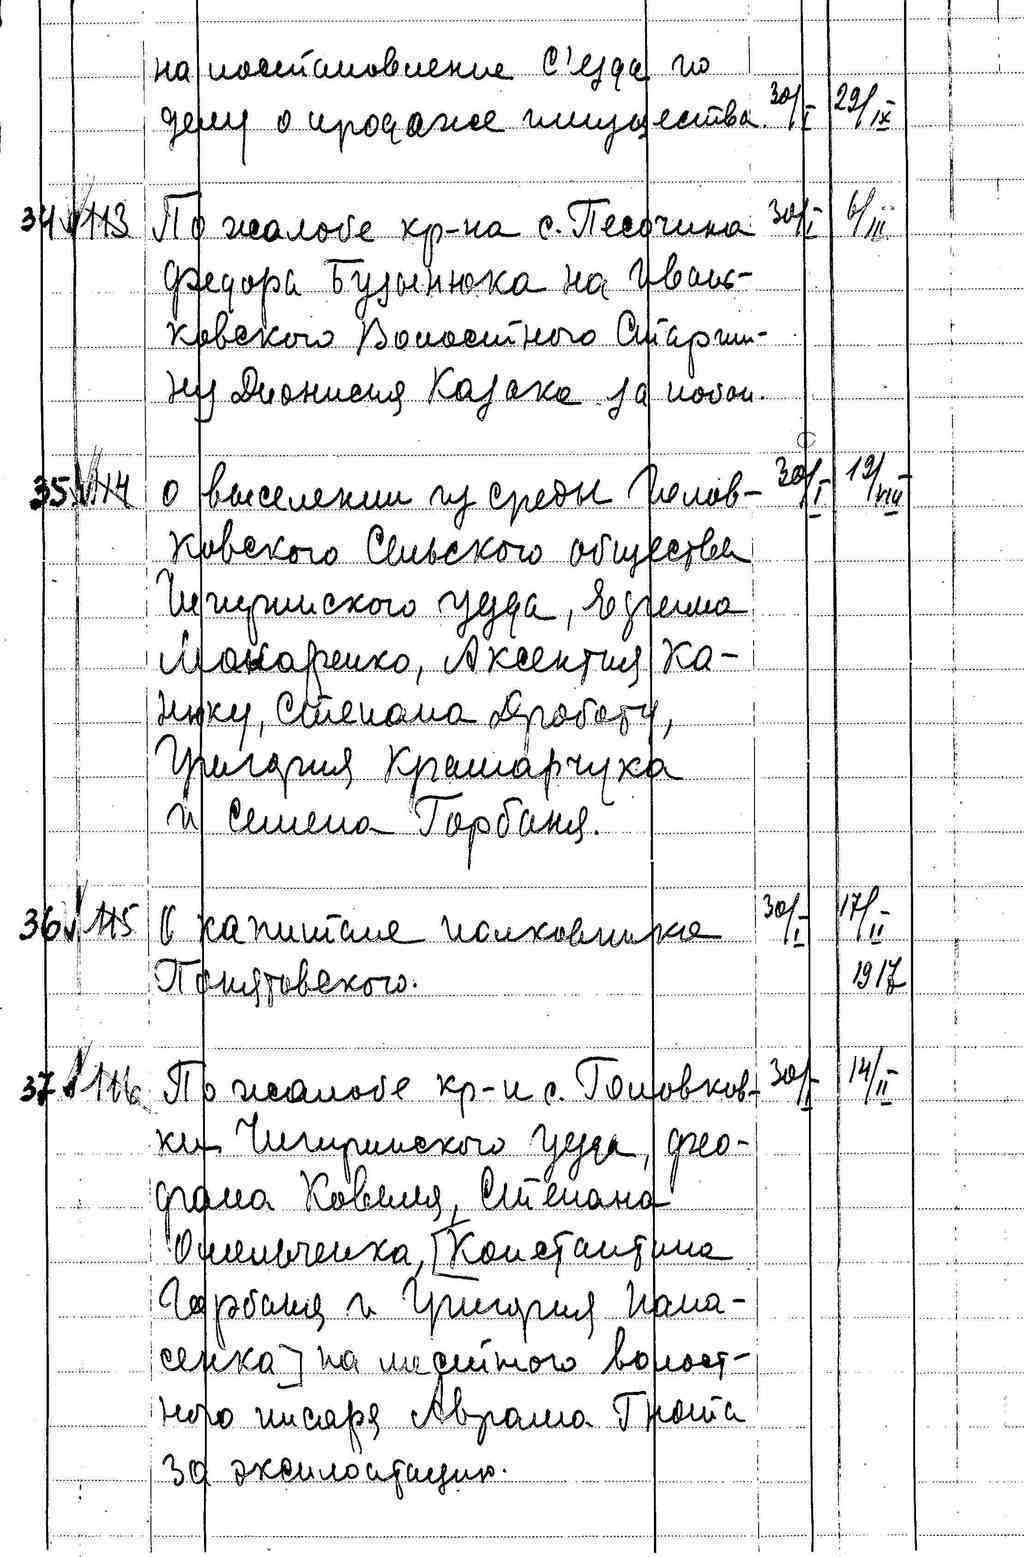 на постановление С'езда по
делу о продаже имущества. 30/I 29/IX
34 113 По жалобе кр-на с. Песочина 30/I 6/III
Федора Бузынюка на Иваньковского
ковского Волостного Старши-
ну Дионисия Казака за побои.
35. 114 О выселении из среды Голов- 30/I 19/VIII
ковского Сельского общества
Чигиринского уезда, Ефрема
Макаренко, Аксентия Ка-
нюку, Степана Дроботу,
Григория Крамарчука
и Семена Горбаня.
36 115 О капитале полковника 30/I 17/II
Понятовского. 1917
37 116 По жалобе кр-н с. Головков- 30/I 14/II
ки Чигиринского уезда, Фео-
фана Коваля, Степана
Омельченка, [Константина
Горбаня и Григория Пана-
сенка] на местного волост-
ного писаря Аврама Гнота
за эксплоатацию.